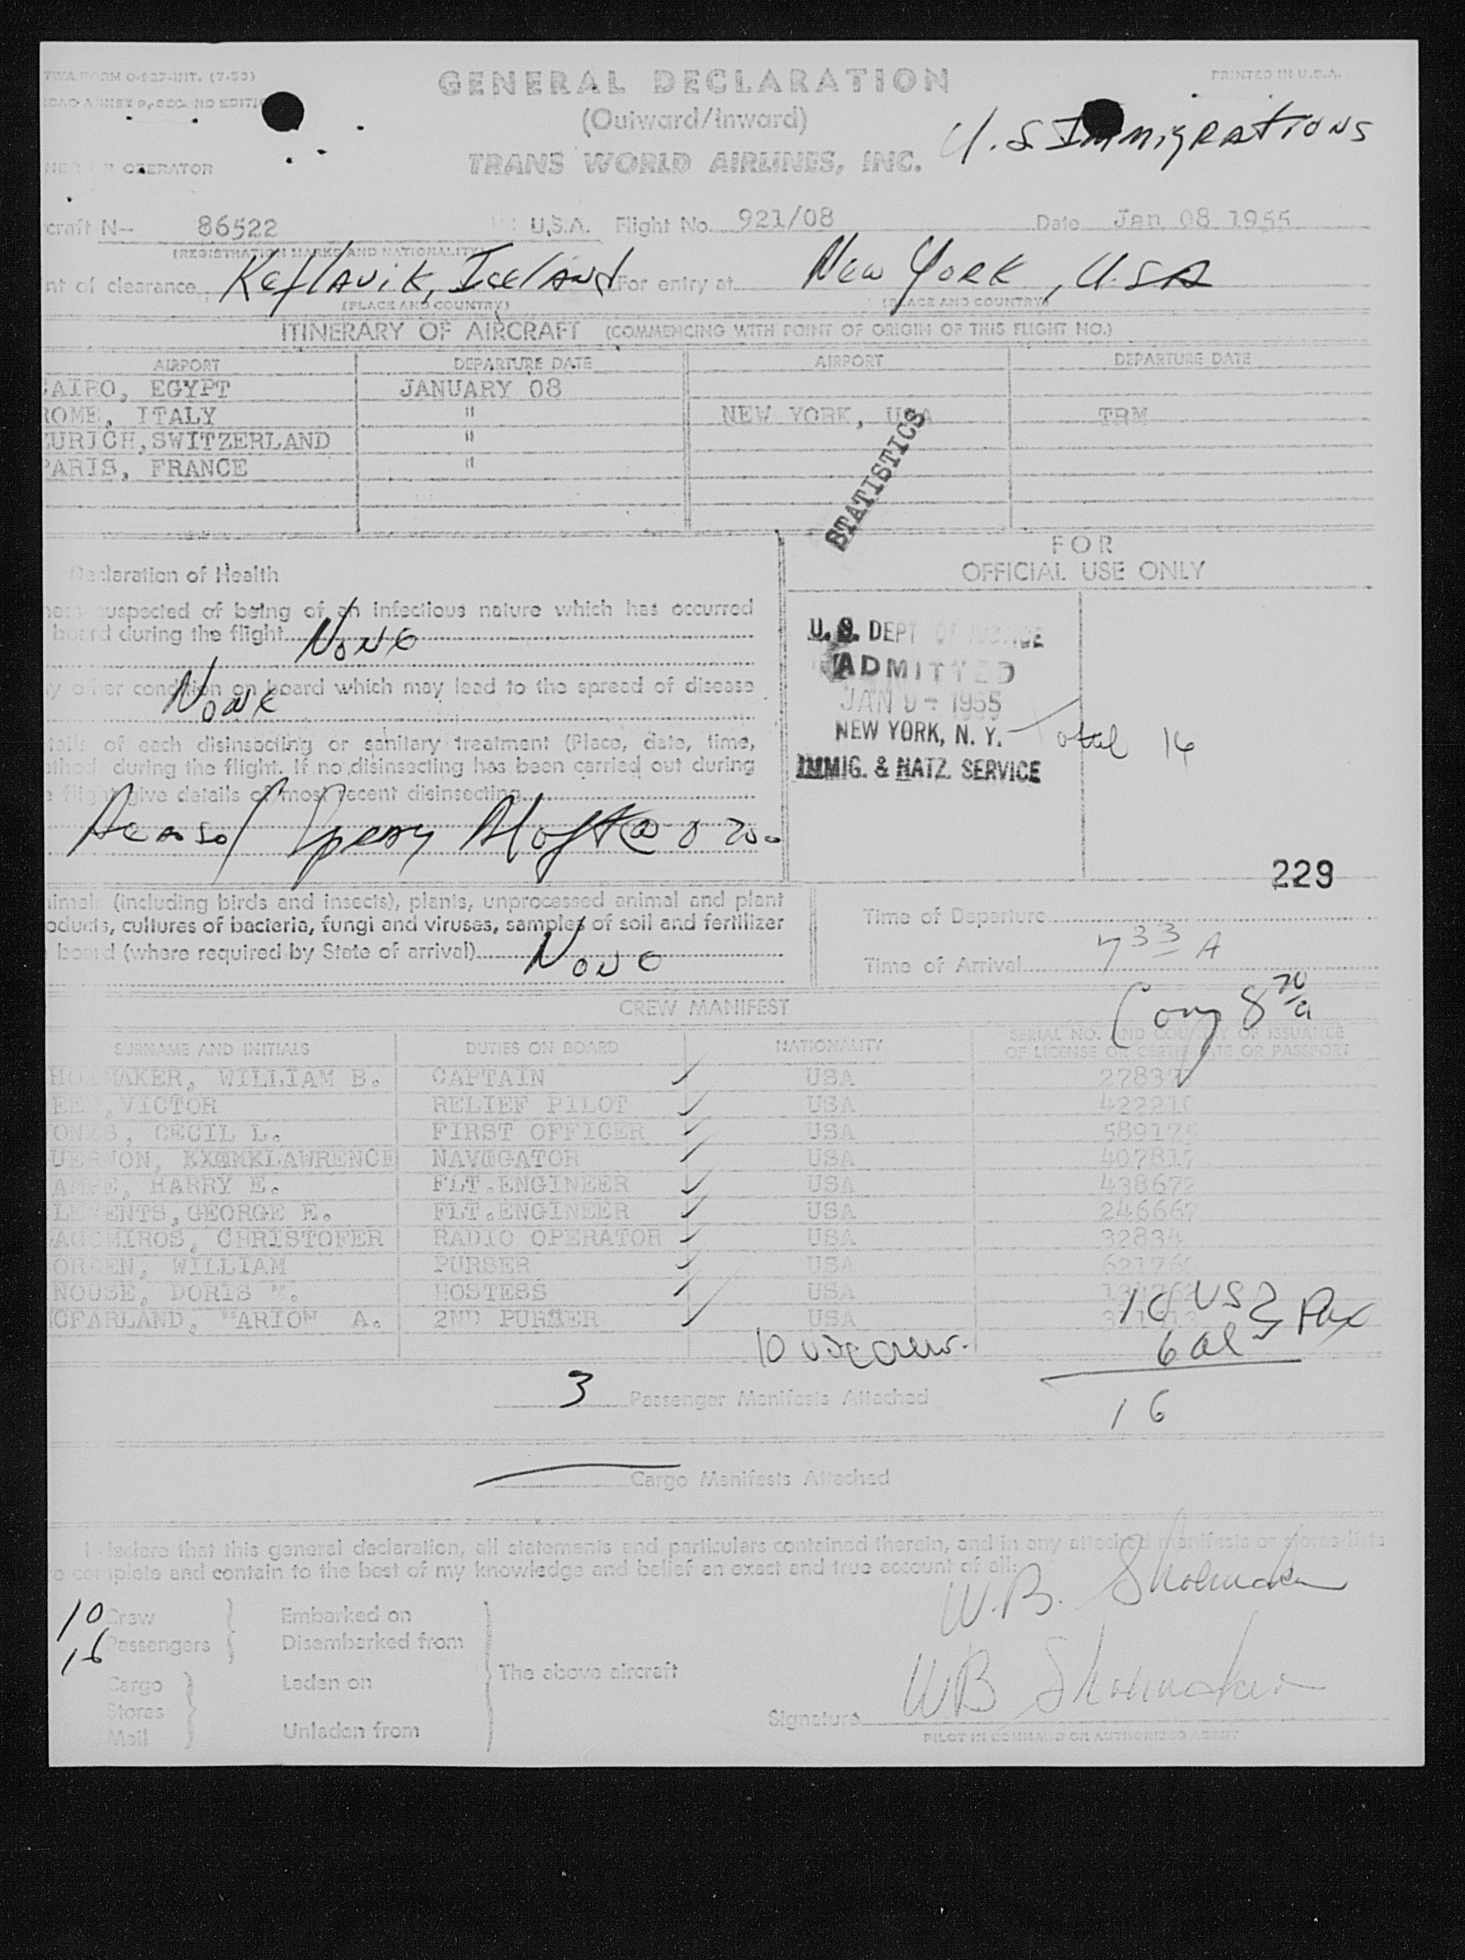 TWA FORM O-927-INT. (7-53)
GENERAL DECLARATION
PRINTED IN U.S.A.
ICAO ANNEX 9, SECOND EDITI
(Outward/Inward)
U.S Immigrations
TRANS WORLD AIRLINES, INC.
OPERATOR
craft N- 86522 U.S.A. Flight No. 921/08 Date Jan 08 1955
(REGISTRATION MARKS AND NATIONALITY)
nt of clearance Keflavik, Iceland For entry at New York, USA
(PLACE AND COUNTRY) (PLACE AND COUNTRY)
ITINERARY OF AIRCRAFT (COMMENCING WITH POINT OF ORIGIN OF THIS FLIGHT NO.)
AIRPORT DEPARTURE DATE AIRPORT DEPARTURE DATE
CAIRO, EGYPT JANUARY 08
ROME, ITALY " NEW YORK, USA TRM
ZURICH,SWITZERLAND "
PARIS, FRANCE "
STATISTICS
FOR
OFFICIAL USE ONLY
Declaration of Health
suspected of being of an infectious nature which has occurred
board during the flight None
y other condition on board which may lead to the spread of disease
None
tails of each disinsecting or sanitary treatment (Place, date, time,
ethod) during the flight. If no disinsecting has been carried out during
e flight give details of most recent disinsecting
U.S. DEPT OF JUSTICE
ADMITTED
JAN 9 - 1955
NEW YORK, N. Y.
IMMIG. & NATZ. SERVICE
Total 16
Spray Aloft @
229
nimals (including birds and insects), plants, unprocessed animal and plant
oducts, cultures of bacteria, fungi and viruses, samples of soil and fertilizer
board (where required by State of arrival) None
Time of Departure
Time of Arrival 7 33 A
CREW MANIFEST
SURNAME AND INITIALS DUTIES ON BOARD NATIONALITY SERIAL NO. AND COUNTRY OF ISSUANCE
OF LICENSE OR CERTIFICATE OR PASSPORT
HOEMAKER, WILLIAM B. CAPTAIN USA 27837
,VICTOR RELIEF PILOT USA 422210
ONES, CECIL L. FIRST OFFICER USA 589175
UERNON, LAWRENCE NAVIGATOR USA 407817
HARRY E. FLT.ENGINEER USA 438672
LEMENTS,GEORGE E. FLT.ENGINEER USA 246667
CHRISTOFER RADIO OPERATOR USA 32834
WILLIAM PURSER USA 62176
NOUSE, DORIS M. HOSTESS USA
CFARLAND, MARION A. 2ND PURSER USA
10 usc crew.
10 US
6 al
Pax
16
3 Passenger Manifests Attached
Cargo Manifests Attached
I declare that this general declaration, all statements and particulars contained therein, and in any attached manifests or stores lists
e complete and contain to the best of my knowledge and belief an exact and true account of all:
W.B. Shoemaker
10 Crew Embarked on
16 Passengers Disembarked from
The above aircraft
Cargo Laden on
Stores
Mail Unladen from
Signature WB Shoemaker
PILOT IN COMMAND OR AUTHORIZED AGENT